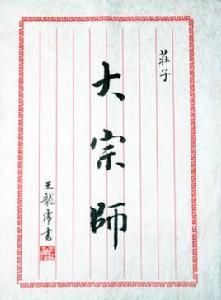 莊子
大宗師
王龍霈書